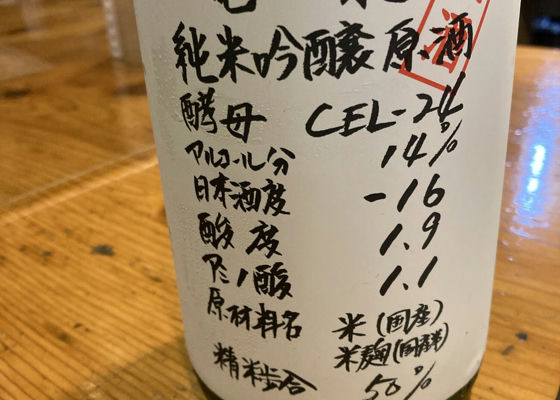 純米吟醸原酒
酵母 CEL-24
アルコール分 14%
日本酒度 -16
酸度 1.9
アミノ酸 1.1
原材料名 米(国産)
米麹(国産米)
精米歩合 50%